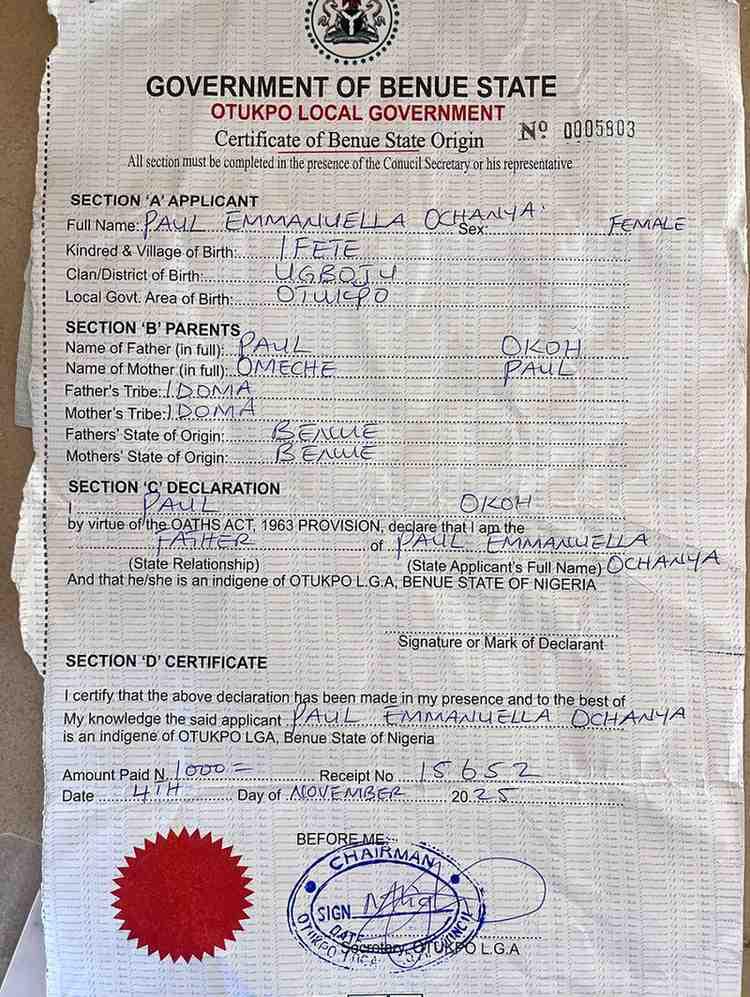 GOVERNMENT OF BENUE STATE
OTUKPO LOCAL GOVERNMENT
Certificate of Benue State Origin Nº 0005803
All section must be completed in the presence of the Conucil Secretary or his representative
SECTION ‘A’ APPLICANT
Full Name: PAUL EMMANUELLA OCHANYA Sex: FEMALE
Kindred & Village of Birth: IFETE
Clan/District of Birth: UGBOJU
Local Govt. Area of Birth: OTUKPO
SECTION ‘B’ PARENTS
Name of Father (in full): PAUL OKOH
Name of Mother (in full): OMECHE PAUL
Father's Tribe: IDOMA
Mother's Tribe: IDOMA
Fathers' State of Origin: BENUE
Mothers' State of Origin: BENUE
SECTION ‘C’ DECLARATION
I PAUL OKOH
by virtue of the OATHS ACT, 1963 PROVISION, declare that I am the
FATHER of PAUL EMMANUELLA
(State Relationship) (State Applicant's Full Name) OCHANYA
And that he/she is an indigene of OTUKPO L.G.A, BENUE STATE OF NIGERIA
Signature or Mark of Declarant
SECTION ‘D’ CERTIFICATE
I certify that the above declaration has been made in my presence and to the best of
My knowledge the said applicant PAUL EMMANUELLA OCHANYA
is an indigene of OTUKPO LGA, Benue State of Nigeria
Amount Paid N 1000= Receipt No 15652
Date 4TH Day of NOVEMBER 2025
BEFORE ME
CHAIRMAN
SIGN
DATE
Secretary, OTUKPO L.G.A